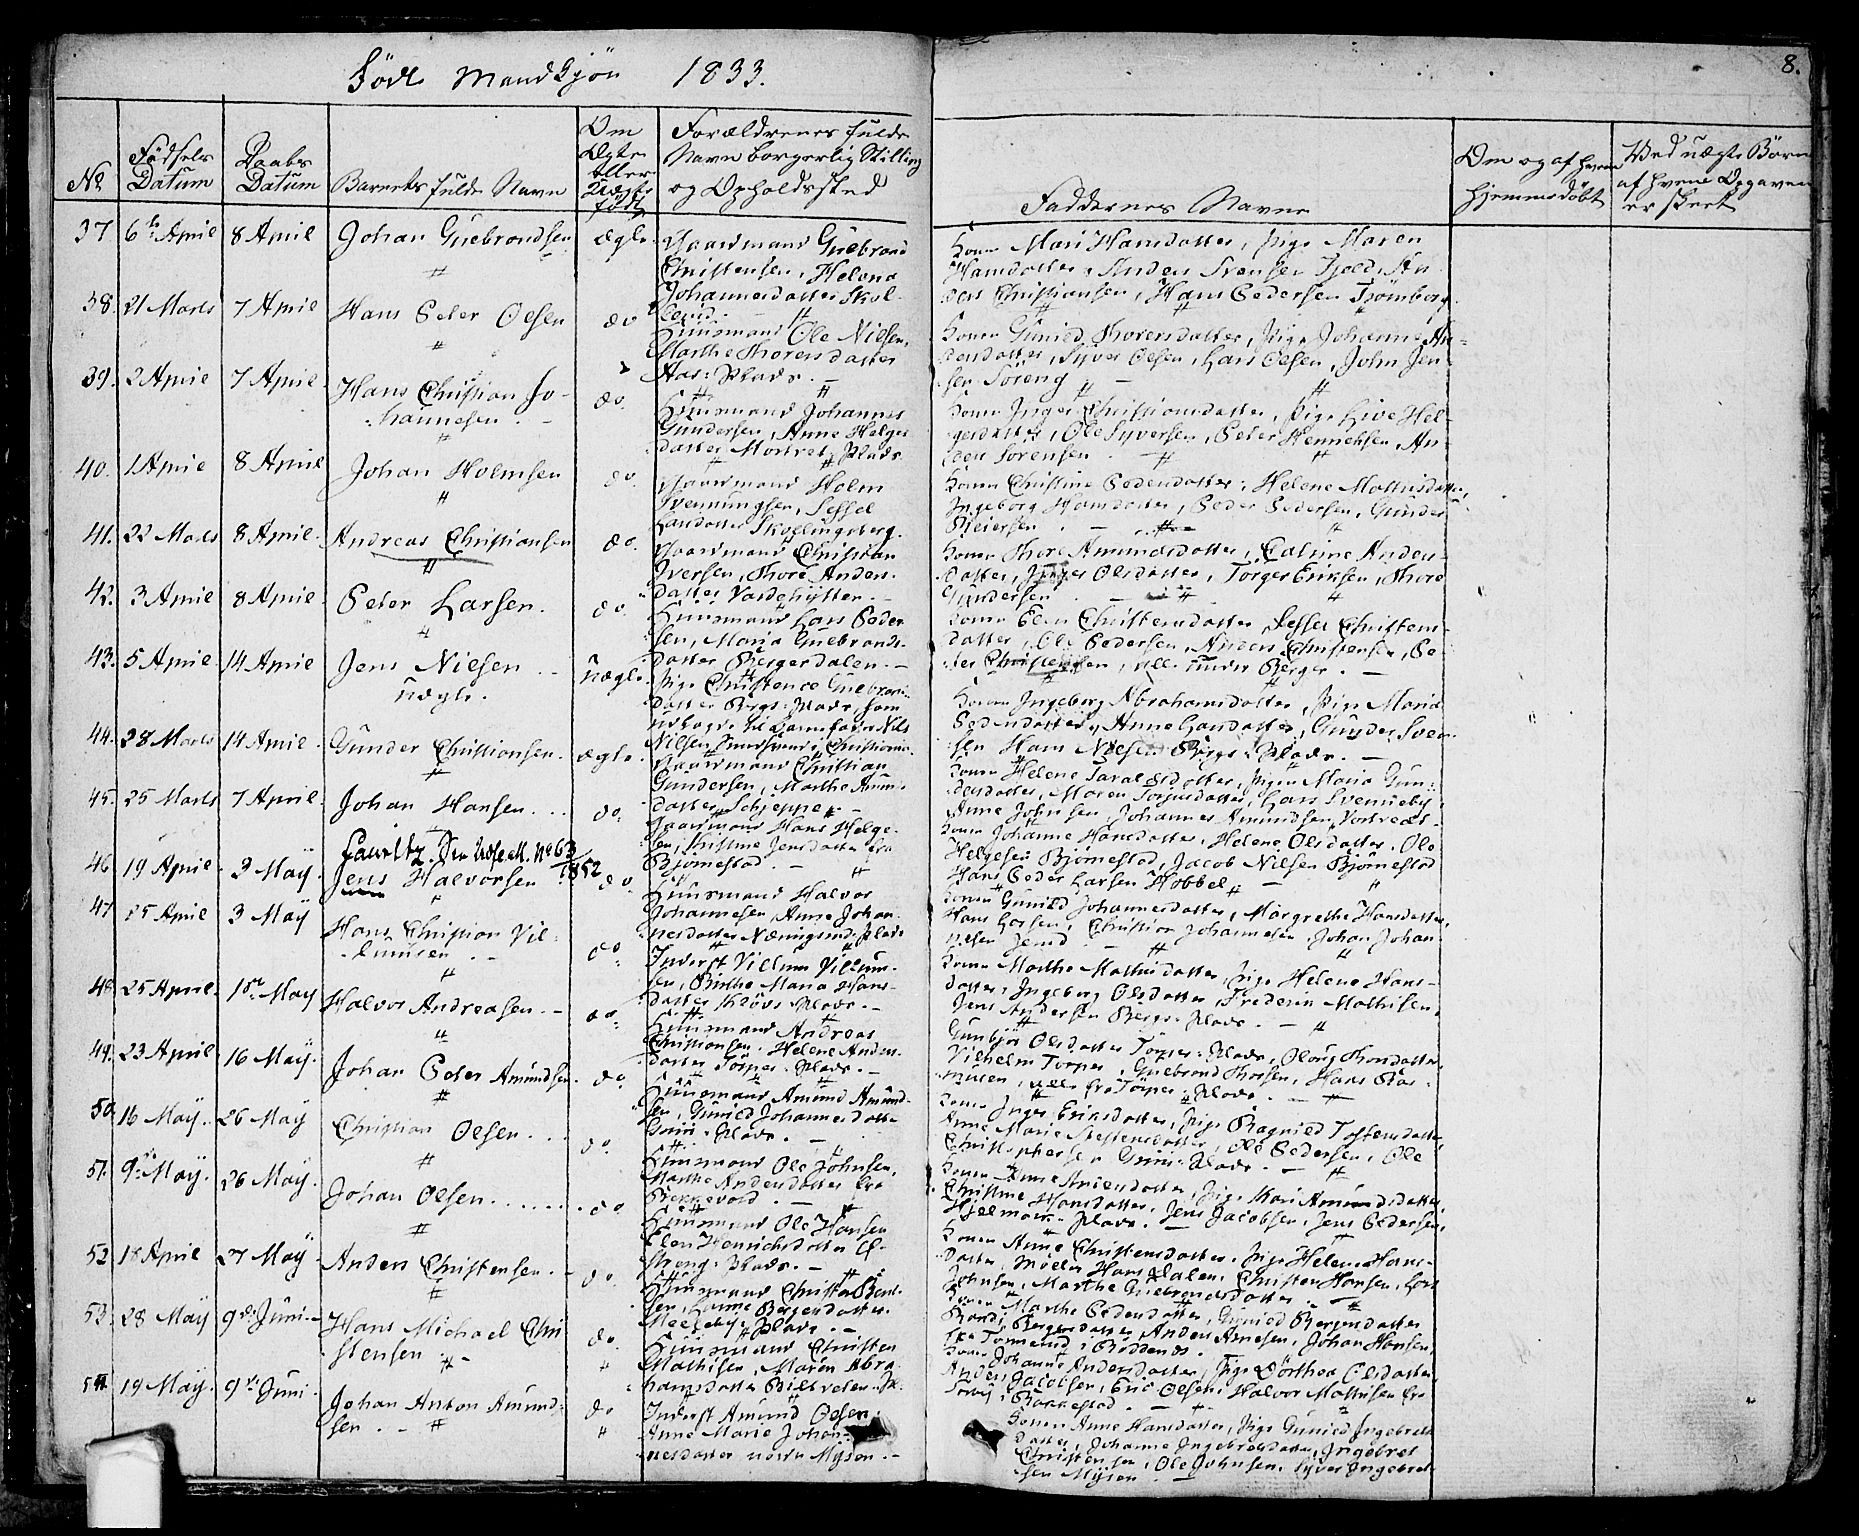 Født Mandkjøn 1833.
8.
No
Fødsels Datum
Daabs Datum
Barnets fulde Navn
Om Ægte eller Uægte født
Forældrenes fulde Navn borgerlig Stilling og Opholdssted
Faddernes Navne
Om og af hvem hjemmedøbt
Ved uægte Børn af hvem Opgaven er skeet
37 6te April 8 April Johan Gulbrandsen ægte
Gaardmand Gulbrand
Christensen, Helena
Johannesdatter Skol-
Konen Mari Hansdatter, Pige Maren
Hansdatter, Anders Svensen Fjeld, An-
ders Christiansen, Hans Pedersen Tjømborg
38. 21 Marts 7 April Hans Peder Olsen do
Huusmand Ole Nielsen,
Marthe Thorersdatter
Aas-Plads.
Konen Gunild Thorersdatter, Pige Johanne An-
dersdatter, Syver Olsen, Lars Olsen, John Jen-
sen Søreng
39. 2 April 7 April Hans Christian Jo-
hannesen do.
Huusmand Johannes
Gundersen, Anne Helges
datter Plads
Konen Inger Christiansdatter, Pige Live Hel-
gesdatter, Ole Syversen, Peder Henrichsen, An-
ders Sørensen
40. 1 April 8 April Johan Holmsen do.
Gaardmand Holm
Svenningsen, Sessel
Larsdatter Skoelingsberg.
Konen Christine Pedersdatter, Helene Mathisdatter,
Ingeborg Hansdatter, Peder Pedersen, Gunder
Reiersen
41. 22 Marts 8 April. Andreas Christiansen do.
Gaardmand Christian
Iversen, Thore Anders-
datter Vardehytten.
Konen Thore Amundsdatter, Cathrine Anders-
datter, Inger Olsdatter, Torger Eriksen, Thore
Gundersen
42. 3 April 8 April Peter Larsen. do.
Huusmand Lars Peder-
sen, Maria Gulbrands-
datter Bergerdalen.
Konen Elen Christensdatter, Sessel Christens-
datter, Ole Pedersen, Anders Christensen, Pe-
der Christensen, alle under Berger.
43. 5 April 14 April Jens Nielsen uægte. uægte
Pige Christence Gulbrands-
datter Bergs-Plads, som
udlagde til Barnefader Niels
Nilsen i Christiania
Konen Ingeborg Abrahamsdatter, Pige Maria
Pedersdatter, Anne Larsdatter, Gunder Sven-
sen Hans Nielsen Bergs-Plads.
44. 28 Marts 14 April. Gunder Christiansen. ægte.
Gaardmand Christian
Gundersen, Marthe Amunds-
datter Schjeppe
Konen Helene Taraldsdatter, Pigen Maria Gun-
dersdatter, Maren Torgersdatter, Lars Svenneby
Anne Johnsen Johannes Amundsen
45. 25 Marts 7 April. Johan Hansen. do.
Gaardmand Hans Helge-
sen, Kristine Jensdatter fra
Bjørnestad
Konen Johanne Hansdatter, Helene Olsdatter, Ole
Helgesen Bjørnestad, Jacob Nilsen Bjørnestad
Hans Peder Larsen Hobbel
Faureltz. No 63 1852
46 19 April 3 May Jens Halvorsen do
Huusmand Halvor
Johannesen, Anne Johan-
nesdatter Plads
Konen Gunild Johannesdatter, Margrethe Hansdatter,
Hans Larsen, Christian Johannesen, Johan Johan-
nesen
47 25 April 3 May Hans Christian Vil-
lumsen do.
Inderst Villum Villum-
sen, Birthe Maria Hans-
datter Plads
Konen Marthe Mathisdatter, Pige Helene Hans-
datter, Ingeborg Olsdatter, Frederik Mathisen,
Jens Andersen Bergs-Plads.
48. 25 April. 15de May Halvor Andreasen do.
Huusmand Andreas
Christiansen, Helene Anders-
datter Torpes-Plads.
Gunbjør Olsdatter Torpes-Plads, Oloug Thorsdatter
Vilhelm Torpes, Gulbrand Thorsen, Hans Ras-
musen, alle fra Torpes-Plads.
49. 23 April 16 May. Johan Peder Amundsen. do.
Huusmand Amund Amund-
sen, Gunild Johannesdatter
Grini-Plads.
Konen Inger Eriksdatter, Pige Ragnild Tostensdatter
Anne Marie Steffensdatter, Ole Pedersen, Ole
Christophersen Grini-Plads.
50. 16 May. 26 May Christian Olsen. do.
Huusmand Ole Johnsen,
Marthe Andersdatter fra
Bekkevold
Konen Anne Andersdatter, Pige Kari Amundsdatter
Christine Hansdatter, Jens Jacobsen, Jens Pedersen,
Hjelmark-Plads.
51. 9de May. 26 May. Johan Olsen. do
Huusmand Ole Hansen
Elen Henrichsdatter
Plads.
Konen Anne Christensdatter, Pige Helene Hans-
datter, Møller Hans Dalen, Christen Hansen, Lars
Johnsen, Marthe Gulbrandsdatter
52 18 April 27 May Anders Christensen. do.
Huusmand Christen Bent-
sen, Lanne Bergersdatter
Melleby-Plads.
Konen Marthe Pedersdatter, Gunild Bergersdatter
Randi Bergersdatter, Anders Arnesen, Johan Hansen,
53. 28 May 9de Juni Hans Michael Chri-
stensen do.
Huusmand Christen
Mathisen, Maren Abra-
hamsdatter
Konen Johanne Andersdatter, Pige Dorthea Olsdatter
Anders Jacobsen, Eric Olsen, Halvor Mathisen fra
Rakkestad
54. 19 May. 9de Juni Johan Anton Amund-
sen do
Inderst Amund Olsen
Anne Marie Johan-
nesdatter nordre Mysen.
Konen Anne Hansdatter, Pige Gunild Ingebrets
datter, Johanne Ingebretsdatter, Ingebret
Christensen, Ole Johnsen, Syver Ingebret-
sen Mysen